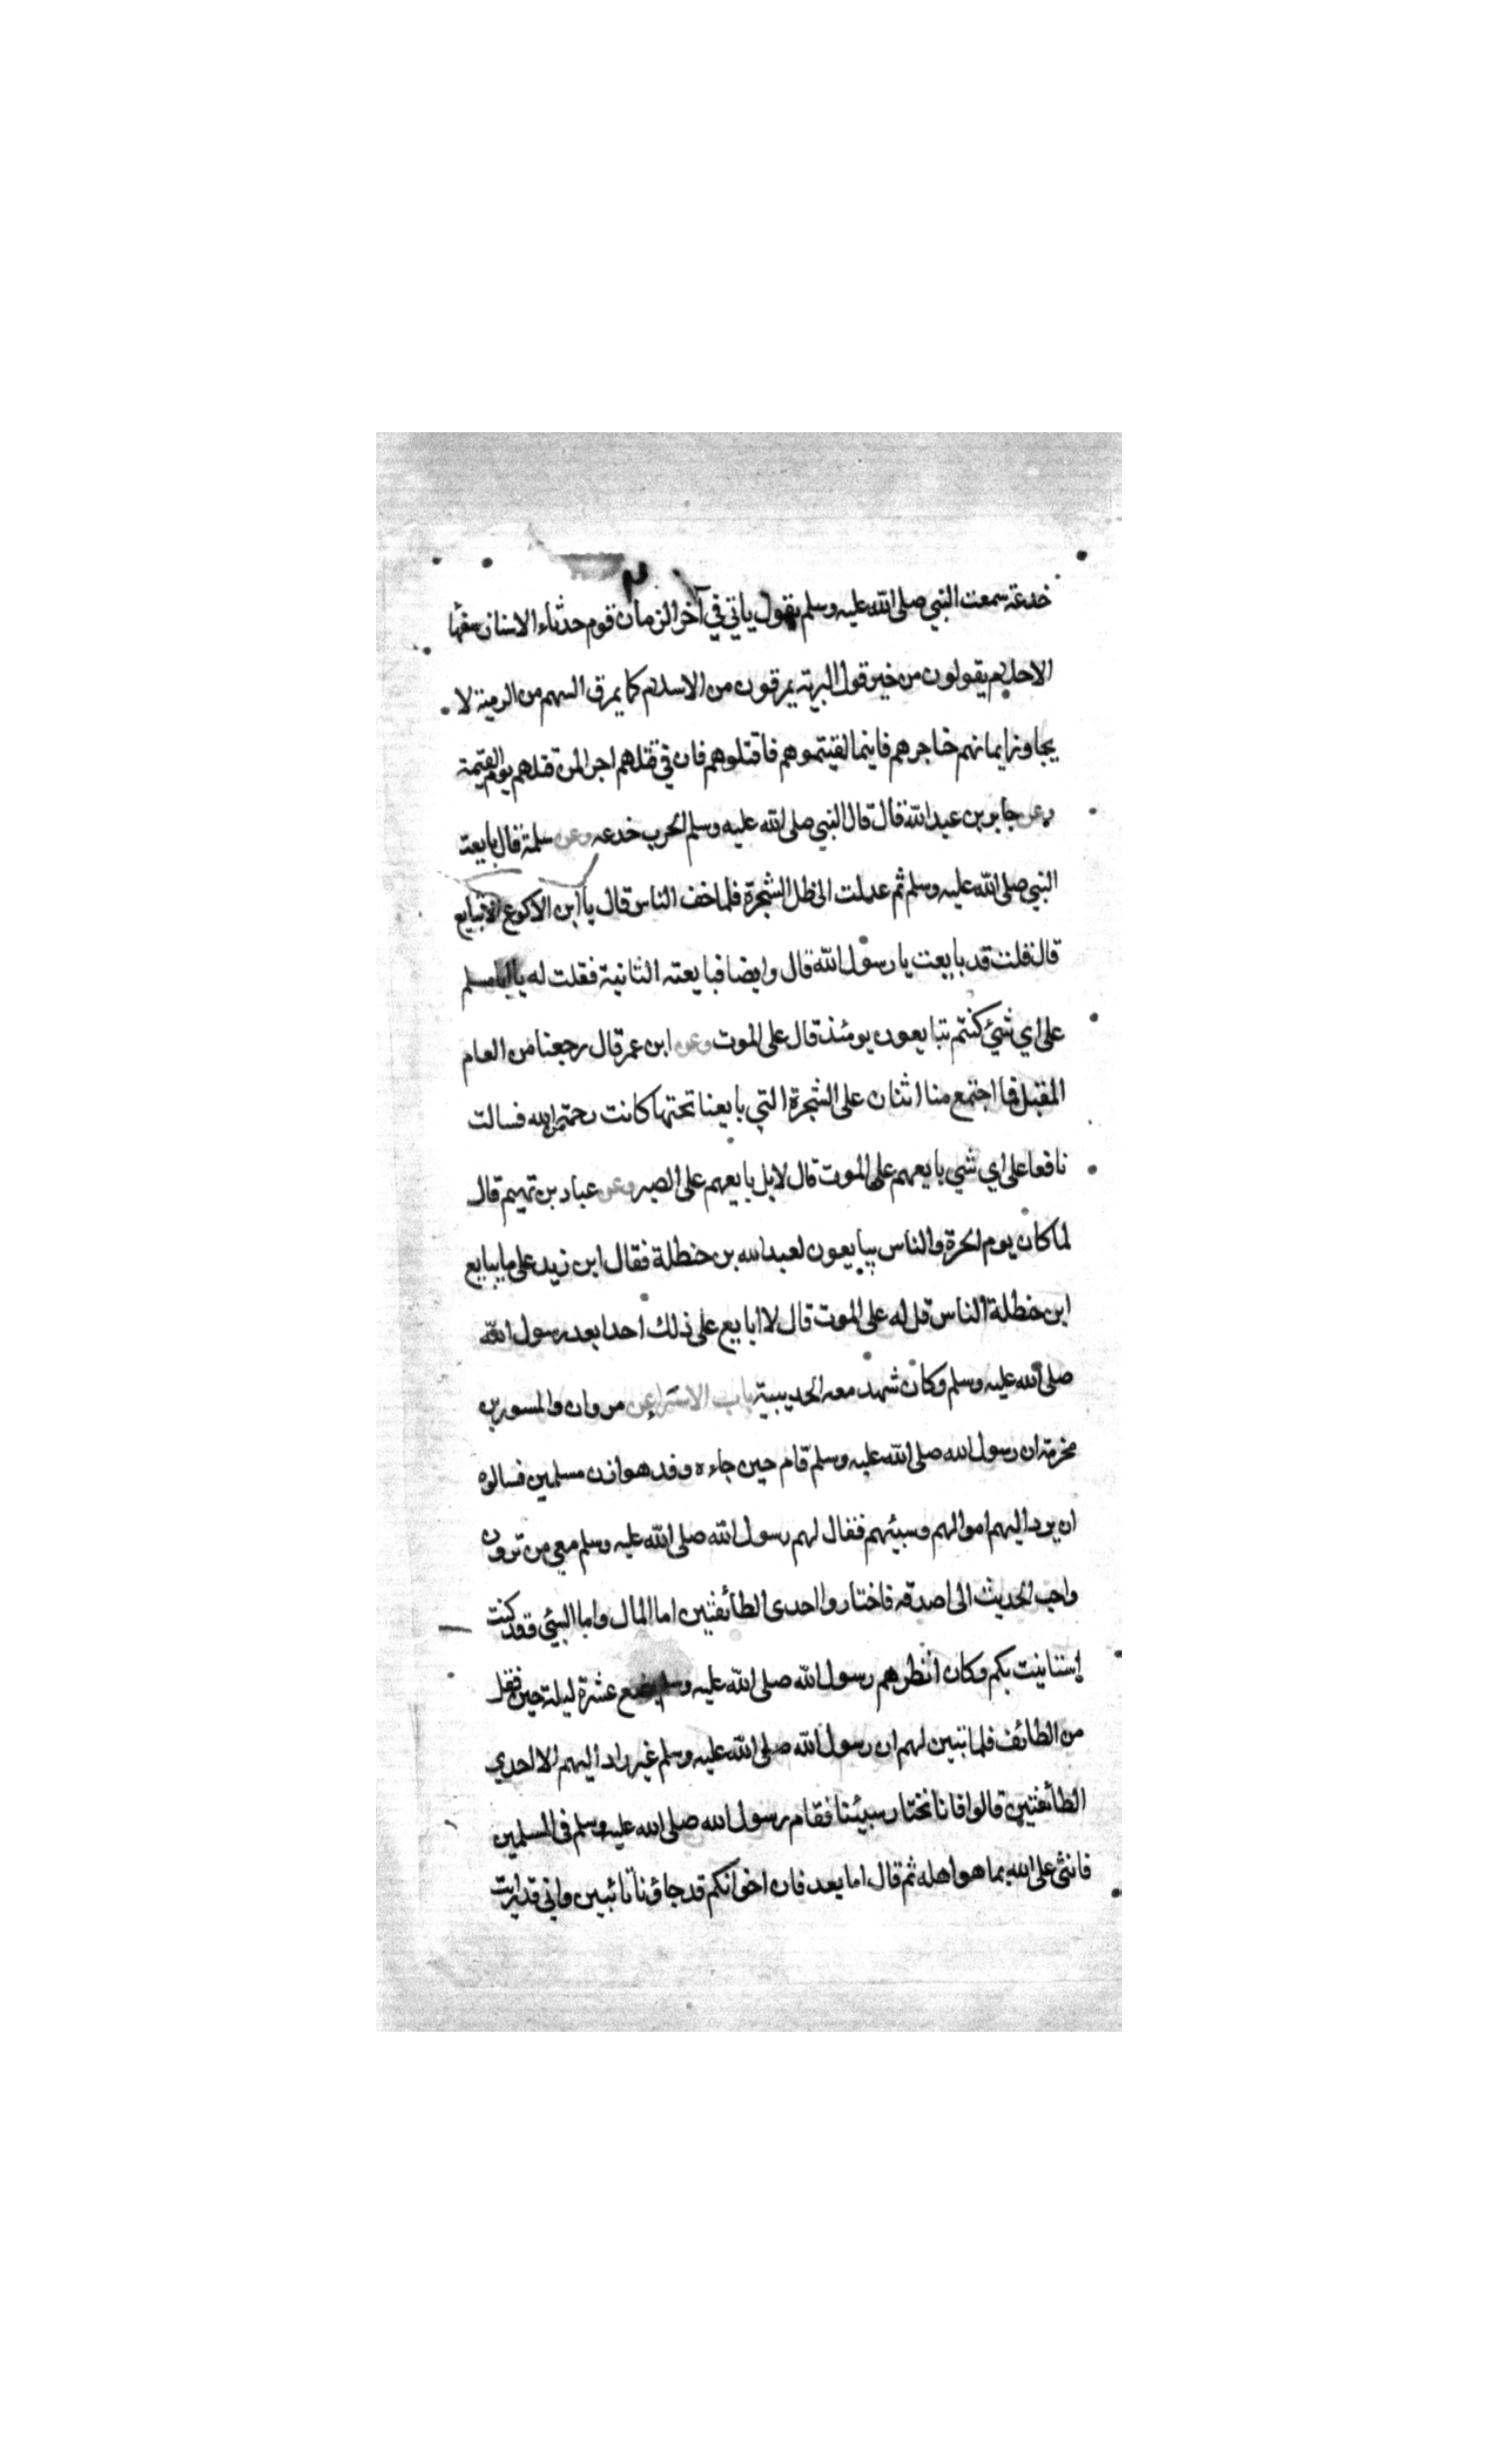 خدعة سمعت النبي صلى الله عليه وسلم يقول ياتي في آخر الزمان قوم حدثاء الاسنان سفها
الاحلام يقولون من خير قول البرية يمرقون من الاسلام كما يمرق السهم من الرمية لا
يجاوز ايمانهم حناجرهم فاينما لقيتموهم فاقتلوهم فان في قتلهم اجر المن قتلهم يوم القيمة
وعن جابر بن عبد الله قال قال النبي صلى الله عليه وسلم الحرب خدعه وعن سلمة قال بايعت
النبي صلى الله عليه وسلم ثم عدلت الى ظل الشجرة فلما خف الناس قال يا ابن الاكوع الا تبايع
قال قلت قد بايعت يا رسول الله قال وايضا فبايعته الثانية فقلت له يا ابا مسلم
على اي شيئ كنتم تبايعون يومئذ قال على الموت وعن ابن عمر قال رجعنا من العام
المقبل فما اجتمع منا اثنان على الشجرة التي بايعنا تحتها كانت رحمة من الله فسالت
نافعا على اي شي بايعهم على الموت قال لا بل بايعهم على الصبر وعن عباد بن تميم قال
لما كان يوم الحرة والناس يبايعون لعبد الله بن حنظلة فقال ابن زيد على ما يبايع
ابن حنظلة الناس قل له على الموت قال لا ابايع على ذلك احدا بعد رسول الله
صلى الله عليه وسلم وكان شهد معه الحديبية باب الاسترا عن مروان والمسور بن
مخرمة ان رسول الله صلى الله عليه وسلم قام حين جاءه وفد هوازن مسلمين فسالوه
ان يرد اليهم اموالهم وسبيهم فقال لهم رسول الله صلى الله عليه وسلم معي من ترون
واحب الحديث الى اصدقه فاختاروا احدى الطائفتين اما المال واما السبي وقد كنت
إستانيت بكم وكان انظرهم رسول الله صلى الله عليه وسلم بضع عشرة ليلة حين قفل
من الطائف فلما تبين لهم ان رسول الله صلى الله عليه وسلم غير راد اليهم الا احدي
الطائفتين قالوا فانا نختار سبينا فقام رسول الله صلى الله عليه وسلم في المسلمين
فاثنى على الله بما هو اهله ثم قال اما بعد فان اخوانكم قد جاؤنا تائبين واني قد رايت